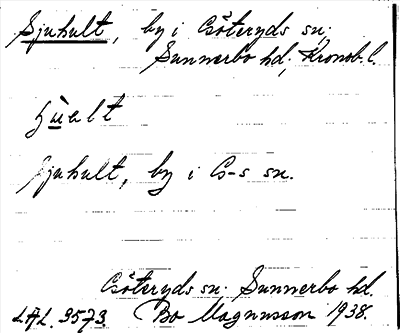 Sjuhult, by i Csöteryds sn;
Sunnerbo hd; Kronob. l.
Sjuhult, by i Cs-s sn.
Csöteryds sn. Sunnerbo hd.
LAL. 3573. Bo Magnusson 1938.